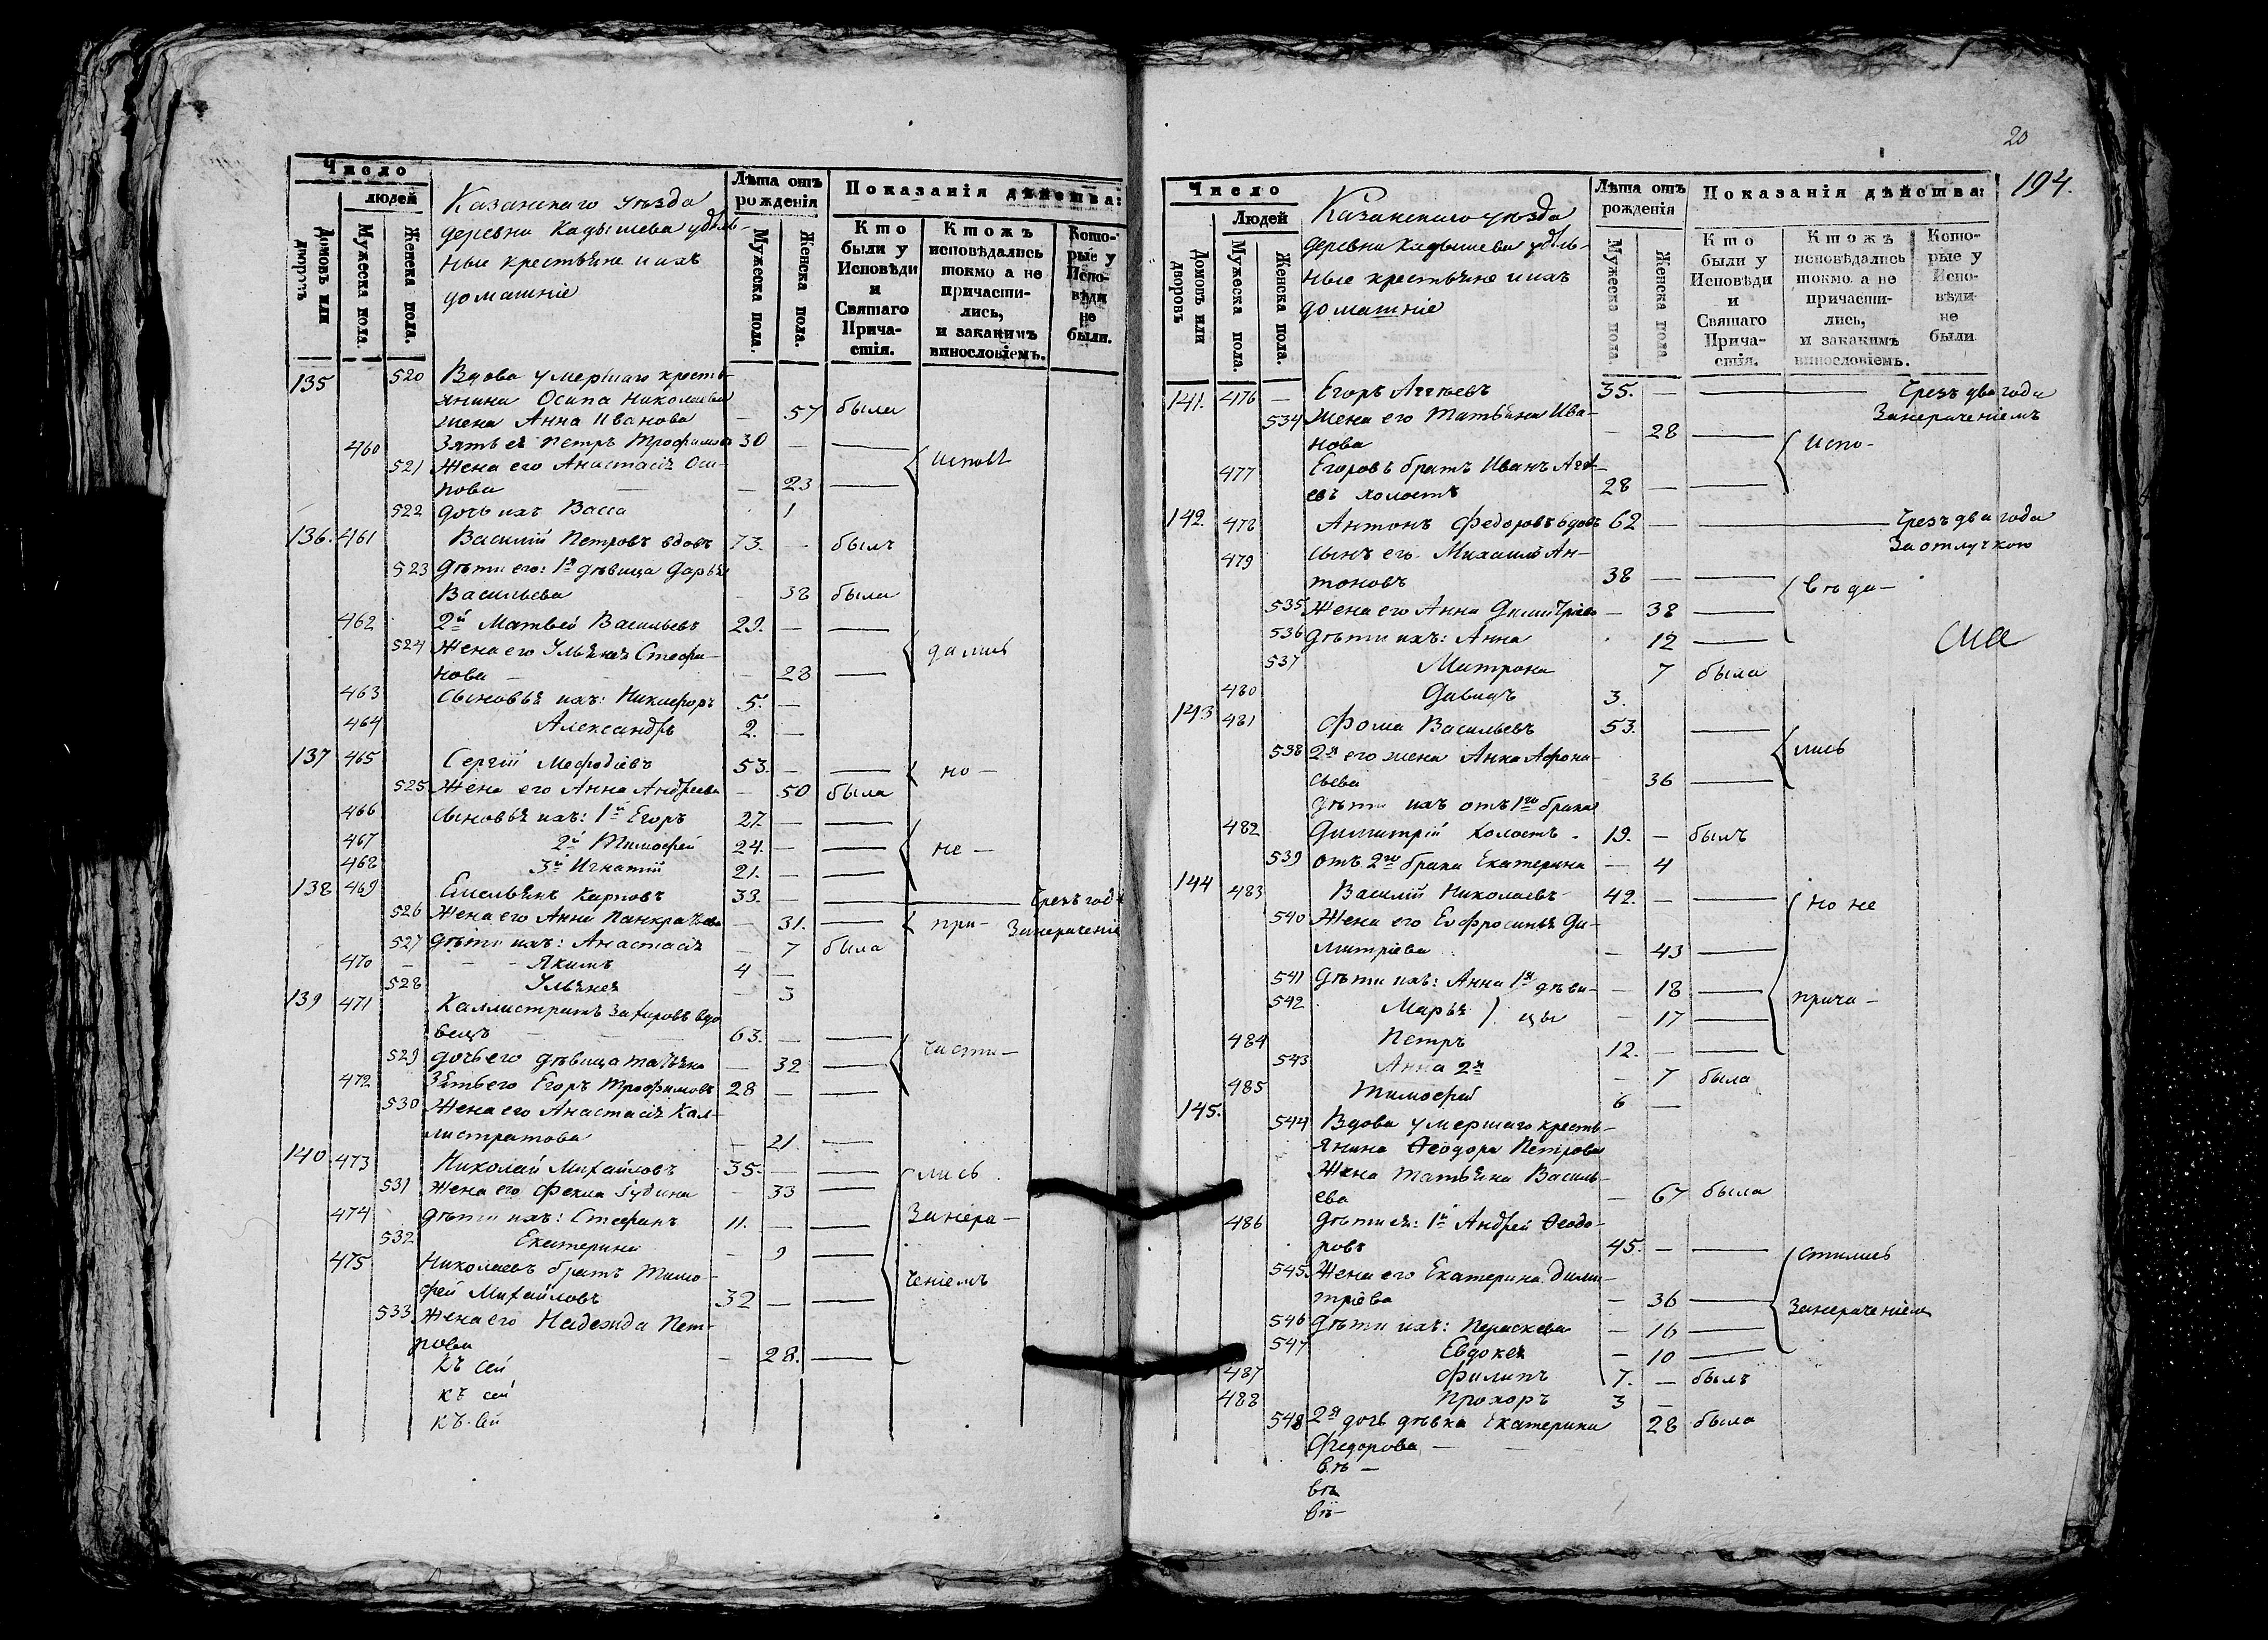 Число
людей
Домовъ или дворовъ
Мужеска пола.
Женска пола.
Казанскаго уѣзда
деревни Кадышева удѣль-
ные крестьяне и ихъ
домашніе
Лѣта отъ рожденія
Мужеска пола.
Женска пола.
Показанія дѣйства:
Кто были у Исповѣди и Святаго Прича-стія.
Ктожъ исповѣдались токмо а не причасти-лись, и закакимъ винословіемъ.
Кото-рые у Испо-вѣди не были.
135 520 Вдова умершаго кресть-
янина Осипа Николаева
жена Анна Иванова — 57 была
460 Зять ея Петръ Трофимовъ 30 — —
521 Жена его Анастасія Оси- исповѣ
пова — 23 —
522 дочь ихъ Васса 1
136. 461 Василій Петровъ вдовъ 73. — былъ
523 дѣти его: 1я дѣвица Дарья
Васильева — 38 была
462 2й Матвѣй Васильевъ 29. — —
524 Жена его Ульянея Стефа- дались
нова — 28 —
463 Сыновья ихъ: Никифоръ 5. —
464 Александръ 2. —
137 465 Сергій Мефодіевъ 53. — — но —
525 Жена его Анна Андреева — 50 была
466 Сыновья ихъ: 1й Егоръ 27. — —
467 2й Тимофей 24. — — не —
468 3й Игнатій 21. — —
138 469 Емельянъ Карповъ 33. — — Чрезъ годъ
526 Жена его Анна Панкратьева — 31. — при- Занераченіе
527 дѣти ихъ: Анастасія — 7 была
470 Якимъ 4 —
528 Ульянея — 3
139 471 Каллистратъ Захаровъ вдо
вецъ 63. — —
529 дочь его дѣвица Татьяна — 32 — части-
472 Зять его Егоръ Трофимовъ 28 — —
530 Жена его Анастасія Кал-
листратова — 21. —
140 473 Николай Михайловъ 35. — — лись
531 Жена его Фекла Іудина — 33 —
474 дѣти ихъ: Стефанъ 11. — — Занера-
532 Екатерина — 9 —
475 Николаевъ братъ Тимо- ченіемъ
фей Михайловъ 32 — —
533 Жена его Надежда Пет-
рова — 28. —
Къ сей
къ сей
къ сей
20
194.
Число
Людей
Домовъ или дворовъ
Мужеска пола.
Женска пола.
Казанскаго уѣзда
деревни Кадышева удѣль-
ные крестьяне и ихъ
домашніе
Лѣта отъ рожденія
Мужеска пола.
Женска пола.
Показанія дѣйства:
Кто были у Исповѣди и Святаго Прича-стія.
Ктожъ исповѣдались токмо а не причасти-лись, и закакимъ винословіемъ.
Кото-рые у Испо-вѣди не были
141. 476 — Егоръ Аггѣевъ 35. — — Чрезъ два года
534 Жена его Татьяна Ива- Занераченіемъ
нова — 28 — Испо-
477 Егоровъ братъ Иванъ Аггѣ-
евъ холостъ 28 — —
142. 478 Антонъ Федоровъ вдовъ 62 — — Чрезъ два года
479 сынъ его Михаилъ Ан- За отлучкою
тоновъ 38 — — вѣда-
535 Жена его Анна Димитріева — 38 —
536 дѣти ихъ: Анна 12 —
537 Матрона 7 была
480 Давидъ 3.
143 481 Фома Васильевъ 53. — лись
538 2я его жена Анна Афона-
сьева — 36 —
дѣти ихъ отъ 1го брака
482 Димитрій холостъ 19. — былъ
539 отъ 2го брака Екатерина — 4
144 483 Василій Николаевъ 42. — — но не
540 Жена его Евфросинья Ди-
митріева — 43 —
541 дѣти ихъ: Анна 1я дѣви- — 18 —
542 Марья цы — 17 — прича-
484 Петръ 12. — —
543 Анна 2я — 7 была
485 Тимофей 6 —
145. 544 Вдова умершаго кресть-
янина Ѳеодора Петрова
Жена Татьяна Василь-
ева — 67 была
486 дѣти ея: 1й Андрей Ѳеодо-
ровъ 45. — — стились
545 Жена его Екатерина Дими-
тріева — 36 — Занераченіемъ
546 дѣти ихъ: Параскева — 16 —
547 Евдокея — 10 —
487 Филипъ 7. — былъ
488 Прохоръ 3 —
548 2я дочь дѣвка Екатерина 28 была
Федорова —
вѣ —
вѣ
вѣ-